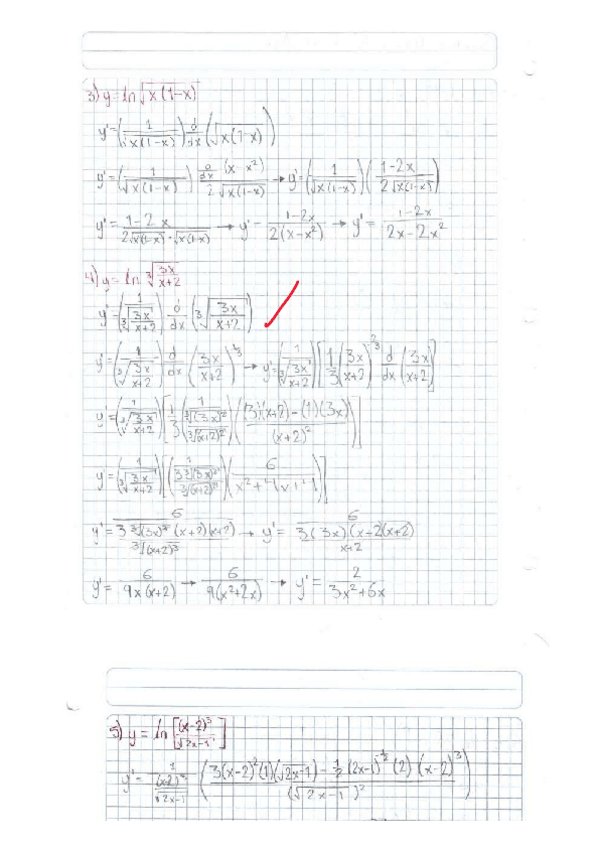 3) y = ln√(x(1-x))
y' = (1/√(x(1-x))) d/dx (√(x(1-x)))
y' = (1/√(x(1-x))) (d/dx (x-x²)/2√(x(1-x))) → y' = (1/√(x(1-x))) ((1-2x)/2√(x(1-x)))
y' = (1-2x)/(2√(x(1-x))·√(x(1-x))) → y' = (1-2x)/(2(x-x²)) → y' = (1-2x)/(2x-2x²)
4) y = ln ∛(3x/(x+2))
y' = (1/∛(3x/(x+2))) d/dx (∛(3x/(x+2)))
y' = (1/∛(3x/(x+2))) d/dx (3x/(x+2))^(1/3) → y' = (1/∛(3x/(x+2))) [1/3 (3x/(x+2))^(-2/3) d/dx (3x/(x+2))]
y' = (1/∛(3x/(x+2))) [1/3 (1/(∛(3x)²/∛(x+2)²)) (((3)(x+2)-(1)(3x))/(x+2)²)]
y' = (1/∛(3x/(x+2))) [(1/(3∛(3x)²/∛(x+2)²)) (6/
y' = 6/(3∛(3x)³ (x+2)(x+2)/∛(x+2)³) → y' = 6/(3(3x)(x+2)(x+2)/x+2)
y' = 6/(9x(x+2)) → 6/(9(x²+2x)) → y' = 2/(3x²+6x)
5) y = ln [(x-2)³/√(2x-1)]
y' = 1/((x-2)³/√(2x-1)) ((3(x-2)²(1)(√(2x-1)) - 1/2 (2x-1)^(-1/2) (2) (x-2)³)/(√(2x-1))²)